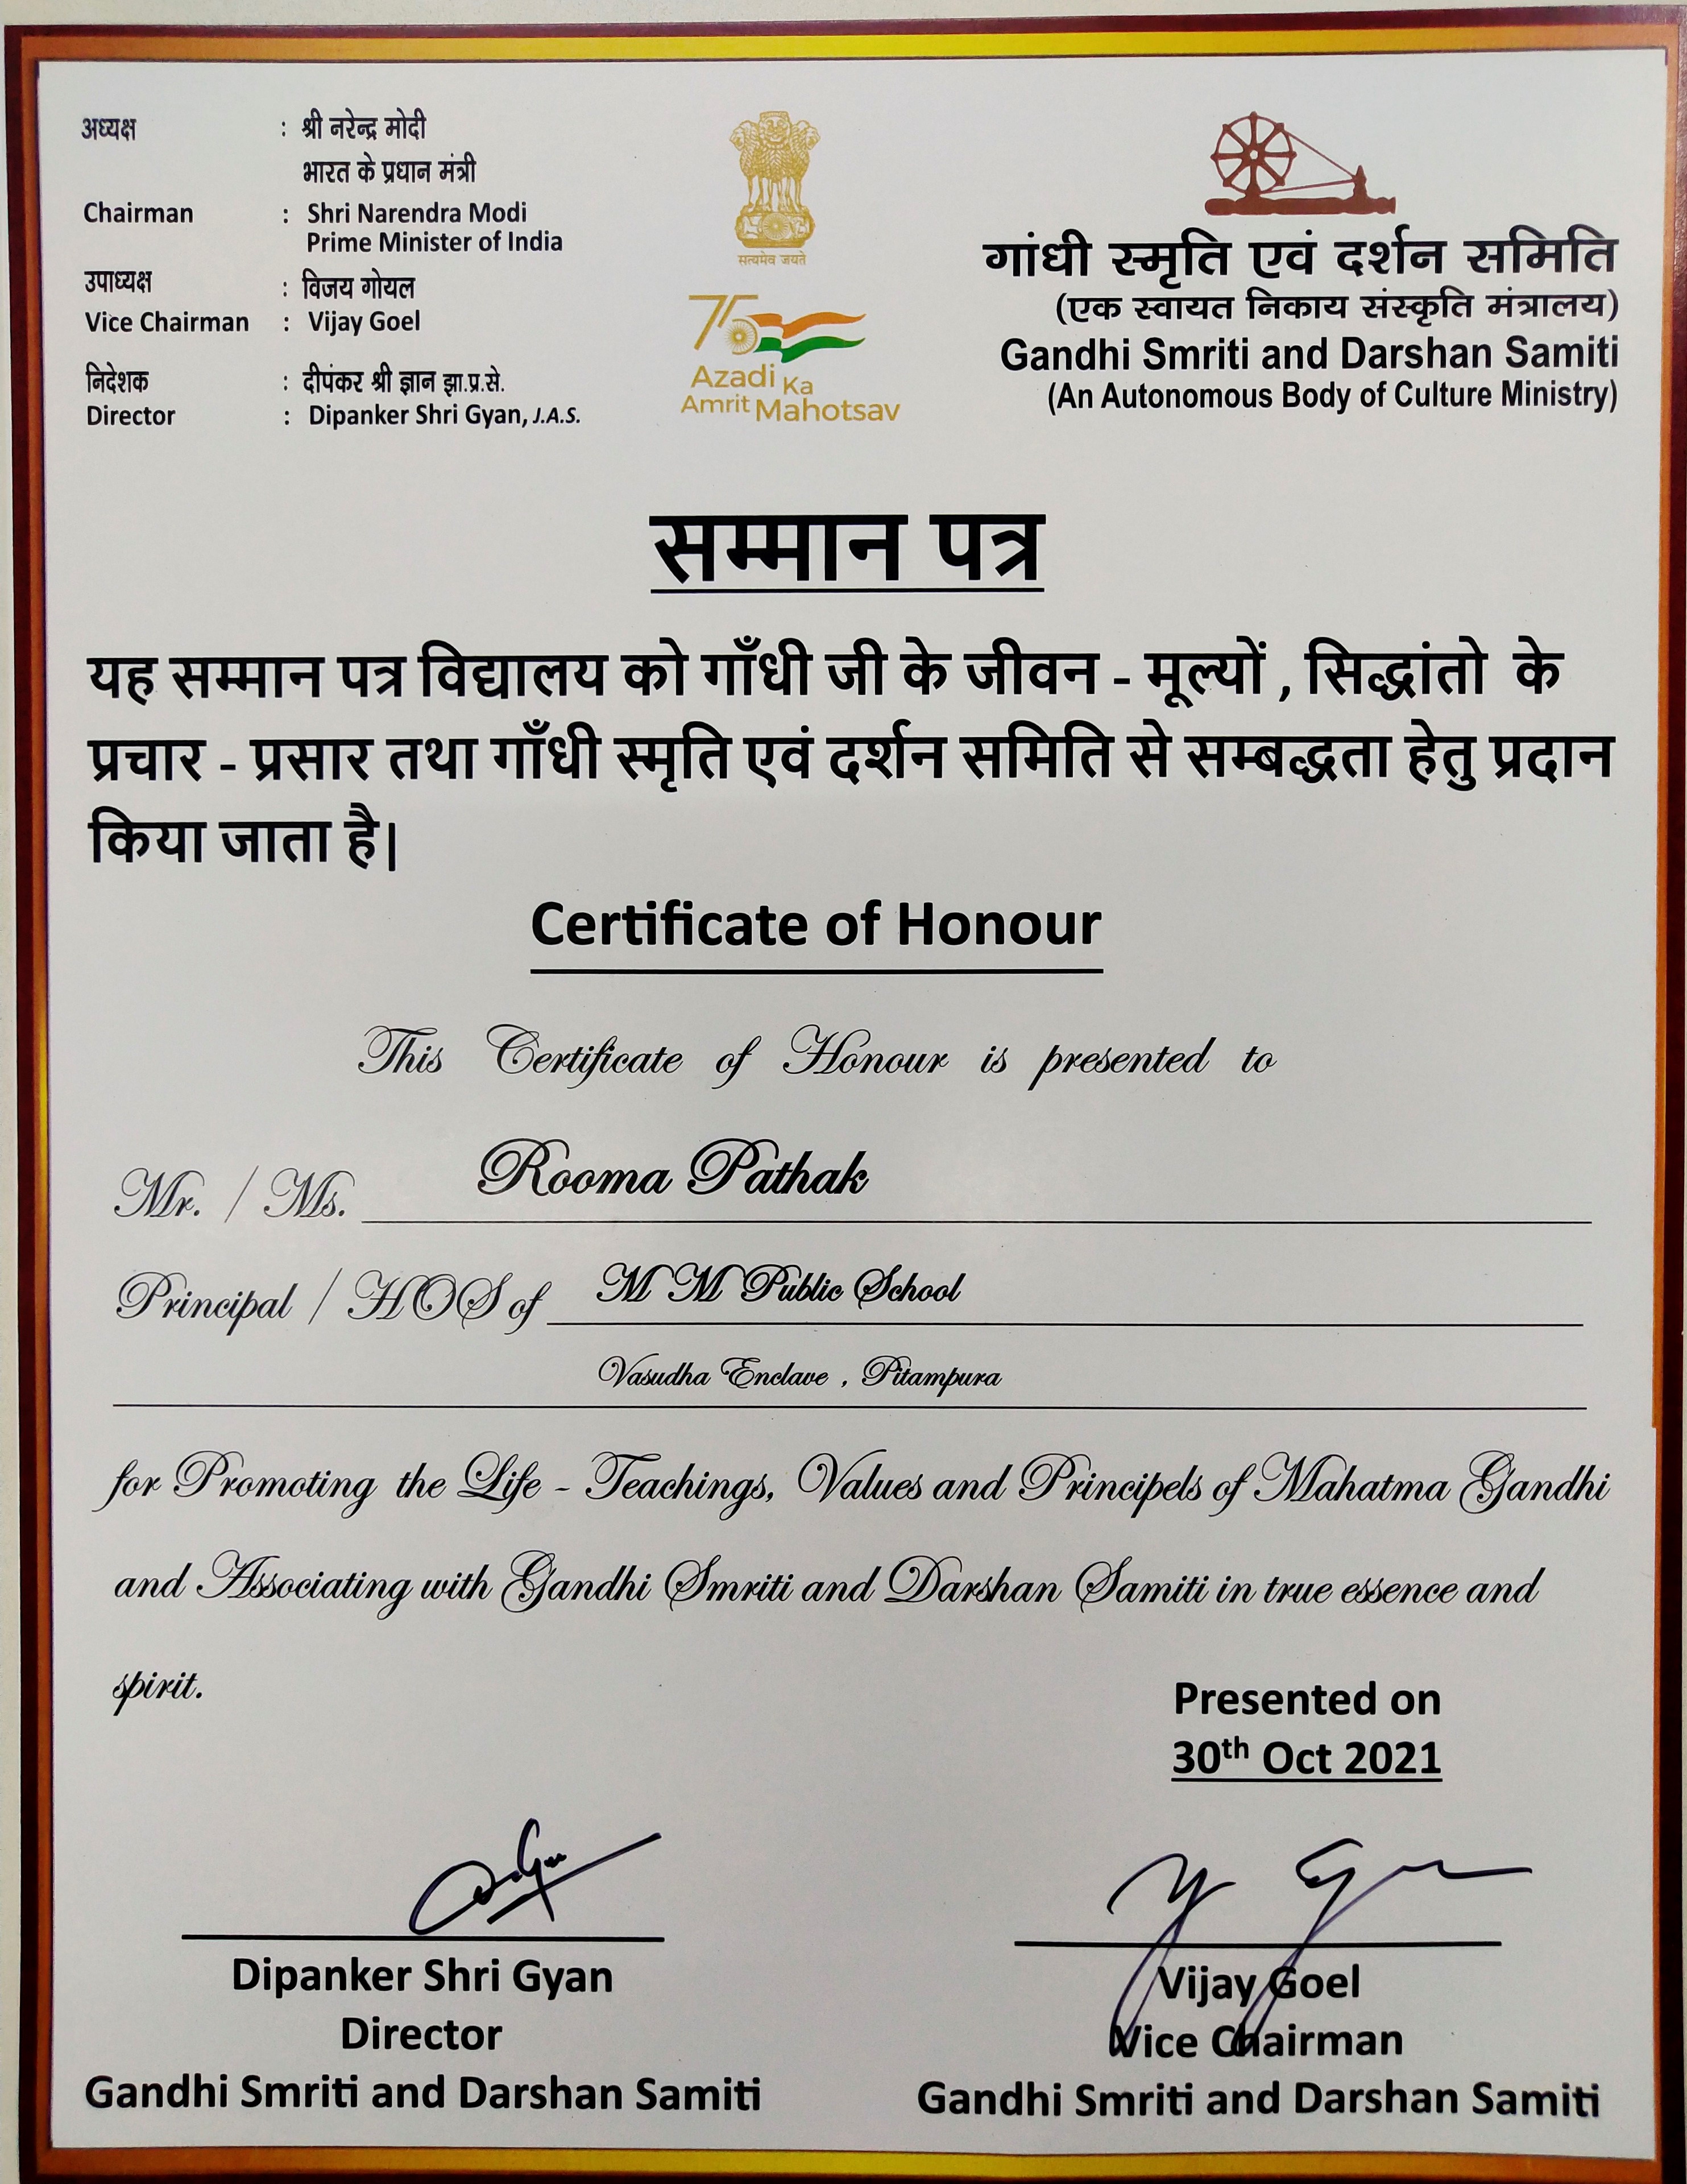 अध्यक्ष : श्री नरेन्द्र मोदी
भारत के प्रधान मंत्री
Chairman : Shri Narendra Modi
Prime Minister of India
उपाध्यक्ष : विजय गोयल
Vice Chairman : Vijay Goel
निदेशक : दीपंकर श्री ज्ञान झा.प्र.से.
Director : Dipanker Shri Gyan, J.A.S.
सत्यमेव जयते
75
Azadi Ka
Amrit Mahotsav
गांधी स्मृति एवं दर्शन समिति
(एक स्वायत निकाय संस्कृति मंत्रालय)
Gandhi Smriti and Darshan Samiti
(An Autonomous Body of Culture Ministry)
सम्मान पत्र
यह सम्मान पत्र विद्यालय को गाँधी जी के जीवन - मूल्यों , सिद्धांतो के
प्रचार - प्रसार तथा गाँधी स्मृति एवं दर्शन समिति से सम्बद्धता हेतु प्रदान
किया जाता है|
Certificate of Honour
This Certificate of Honour is presented to
Mr. / Ms. Rooma Pathak
Principal / HOS of M M Public School
Vasudha Enclave , Pitampura
for Promoting the Life - Teachings, Values and Principels of Mahatma Gandhi
and Associating with Gandhi Smriti and Darshan Samiti in true essence and
spirit.
Presented on
30th Oct 2021
Dipanker Shri Gyan
Director
Gandhi Smriti and Darshan Samiti
Vijay Goel
Vice Chairman
Gandhi Smriti and Darshan Samiti